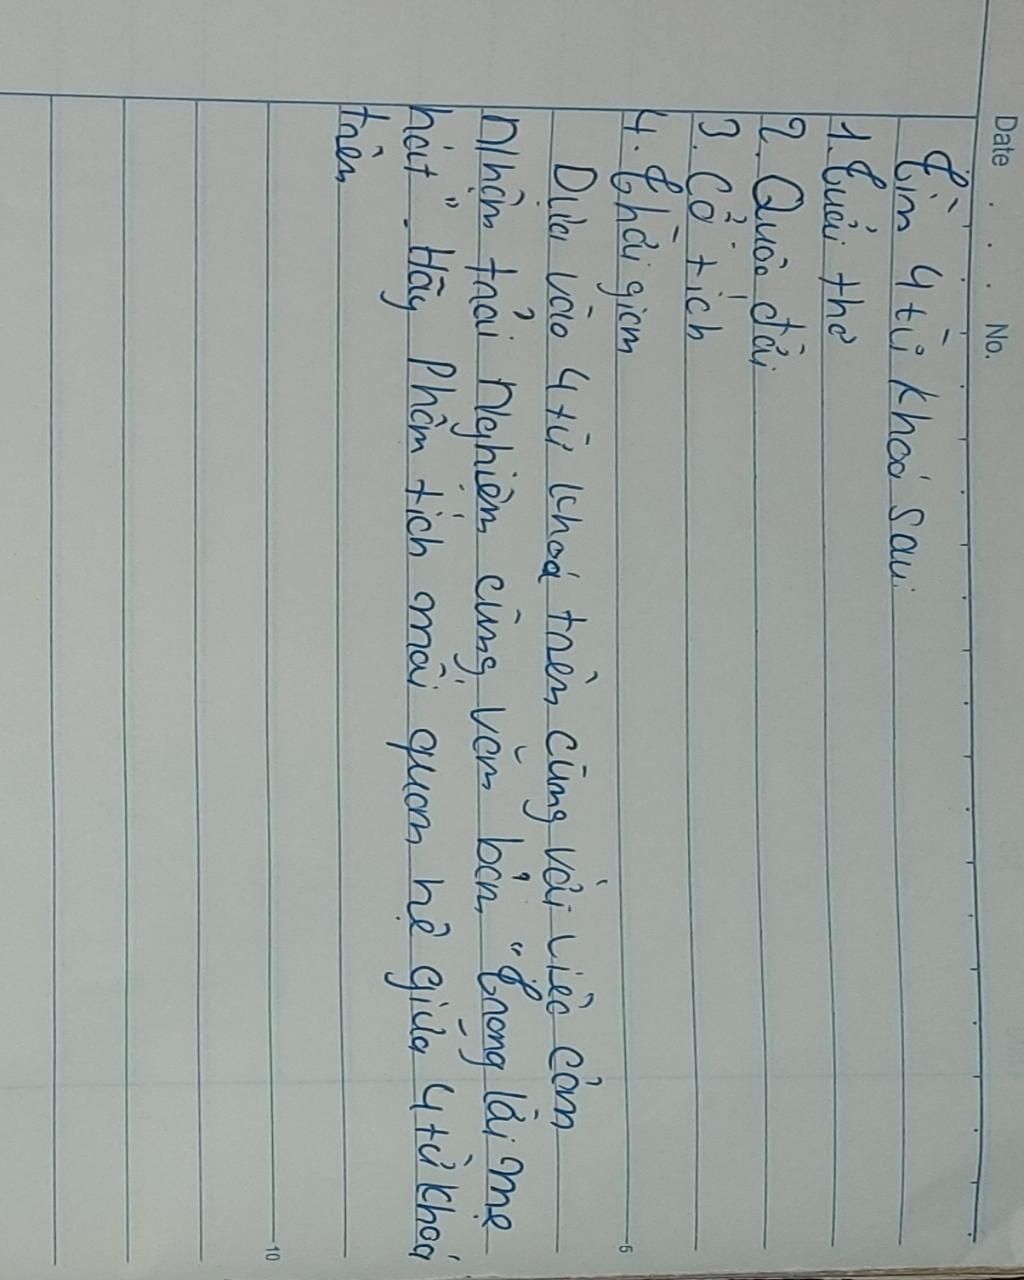 Date . . . No.
Tìm 4 từ khoá sau:
1. Tuổi thơ
2. Cuộc đời
3. Cổ tích
4. Thời gian
Dựa vào 4 từ khoá trên cùng với việc cảm
nhận trải nghiệm cùng văn bản "Trong lời mẹ
hát". Hãy phân tích mối quan hệ giữa 4 từ khoá
trên
5
10